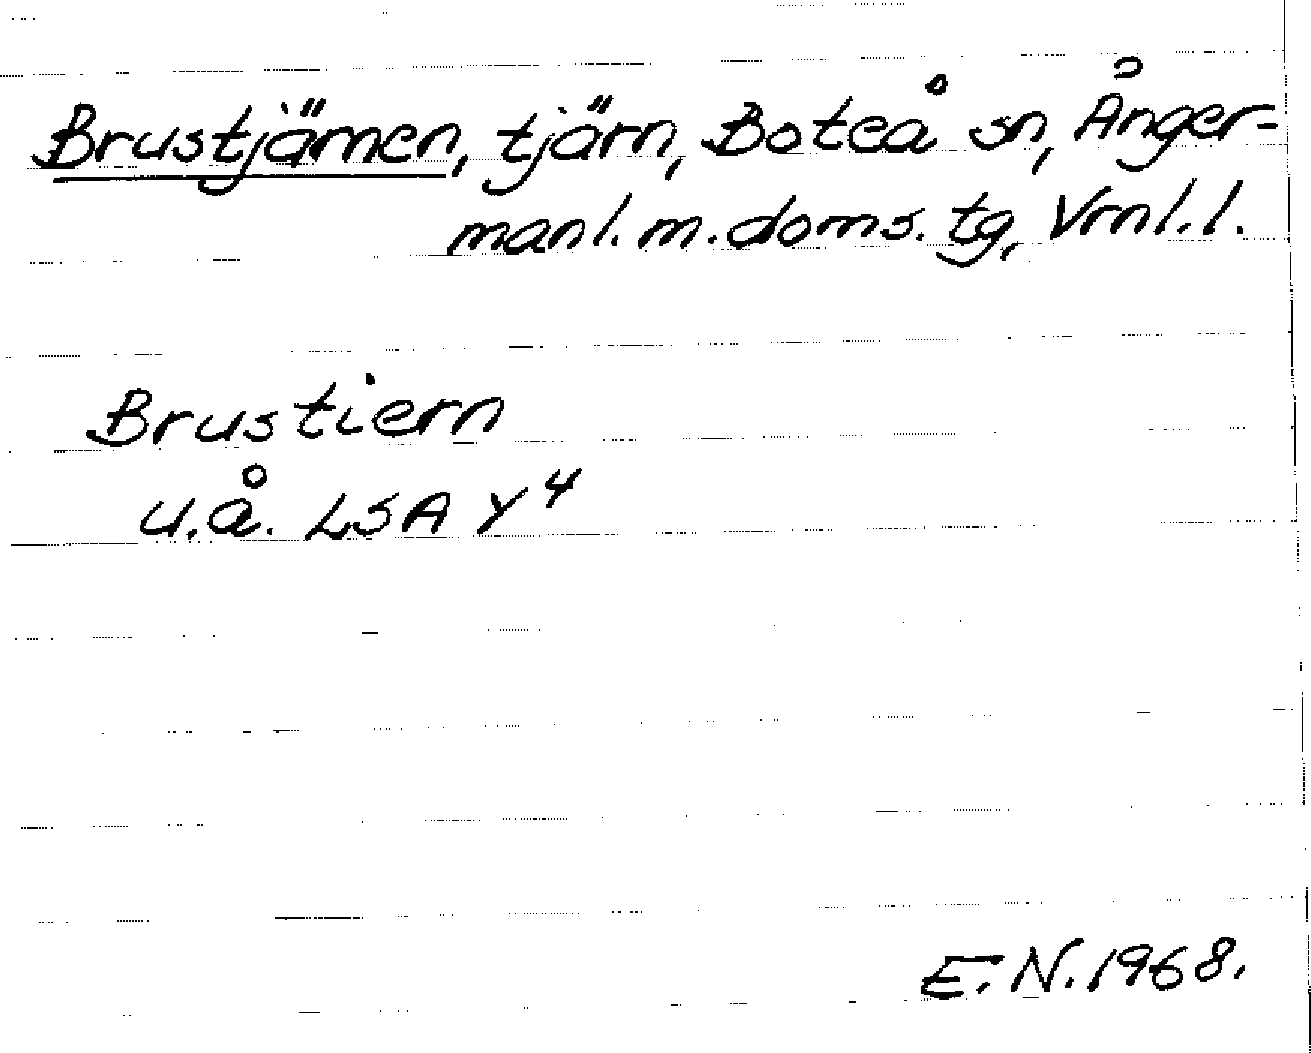 Brustjärnen, tjärn, Boteå sn, Ånger-
manl. m. doms. tg, Vrnl. l.
Brustiern
u.å. LSA Y⁴
E. N. 1968.